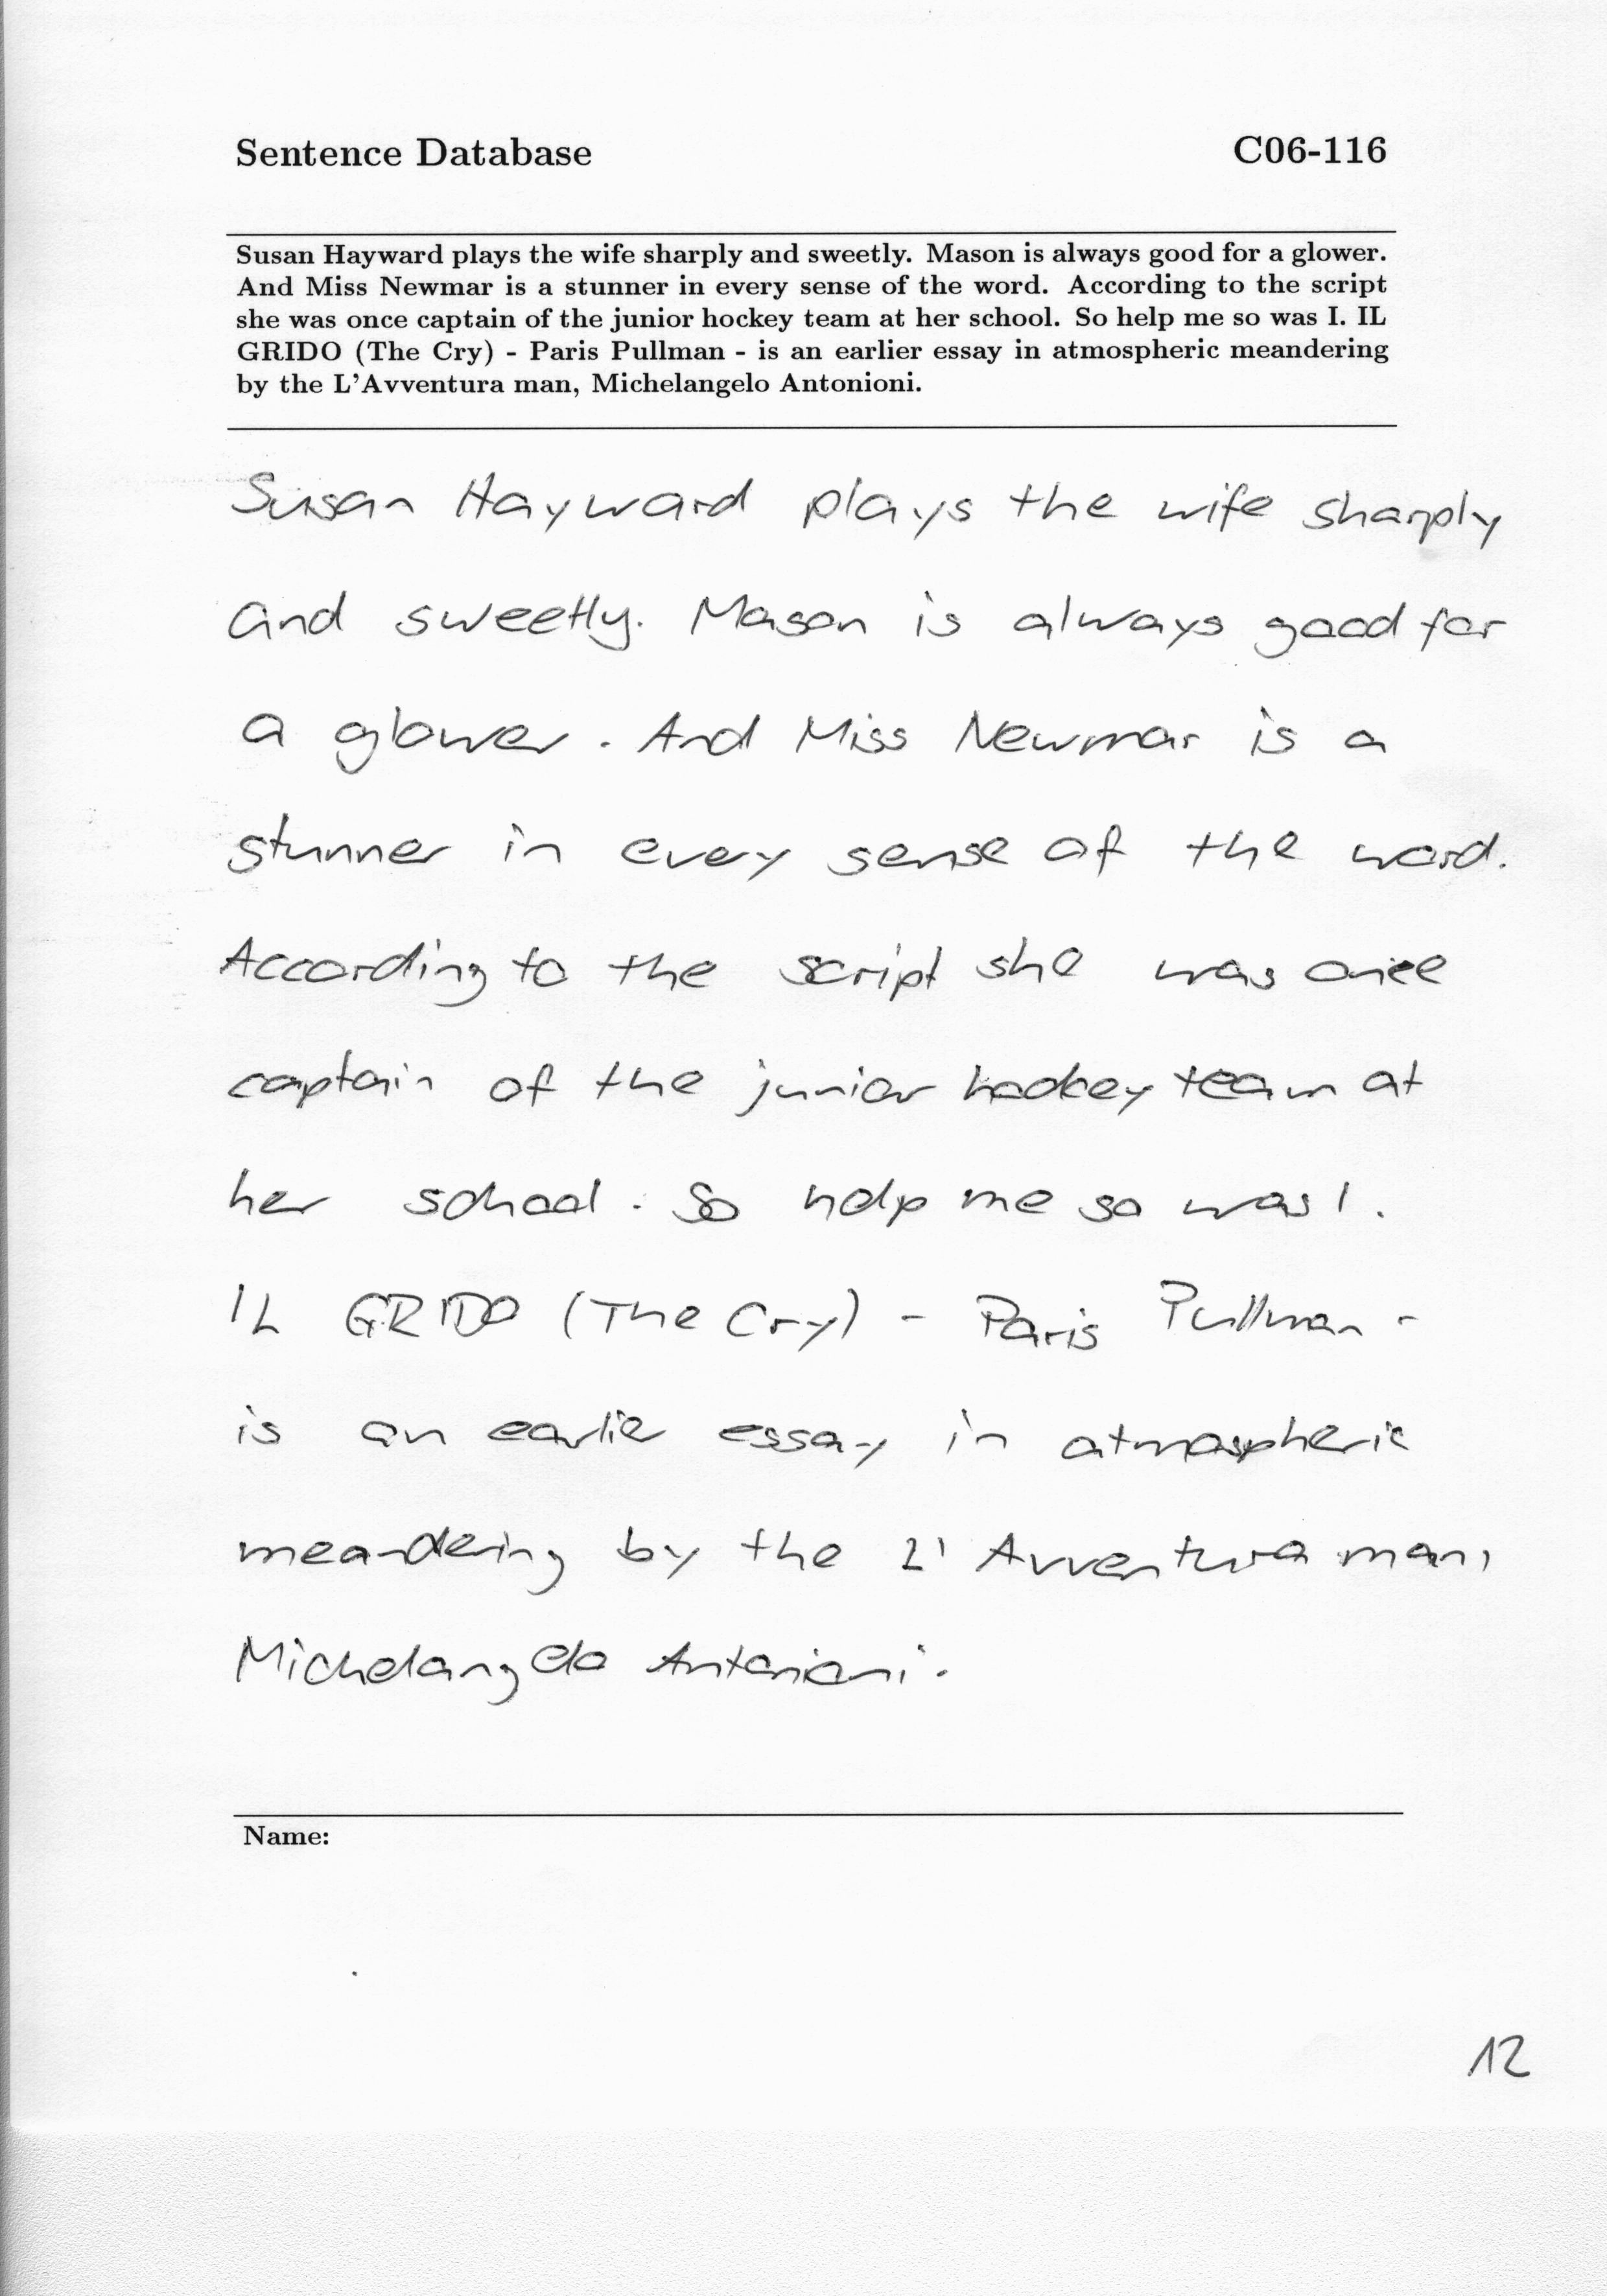 Sentence Database C06-116
Susan Hayward plays the wife sharply and sweetly. Mason is always good for a glower.
And Miss Newmar is a stunner in every sense of the word. According to the script
she was once captain of the junior hockey team at her school. So help me so was I. IL
GRIDO (The Cry) - Paris Pullman - is an earlier essay in atmospheric meandering
by the L'Avventura man, Michelangelo Antonioni.
Susan Hayward plays the wife sharply
and sweetly. Mason is always good for
a glower. And Miss Newmar is a
stunner in every sense of the word.
According to the script she was once
captain of the junior hockey team at
her school. So help me so was I.
IL GRIDO (The Cry) - Paris Pullman -
is an earlier essay in atmospheric
meandering by the L'Avventura man,
Michelangelo Antonioni.
Name:
12